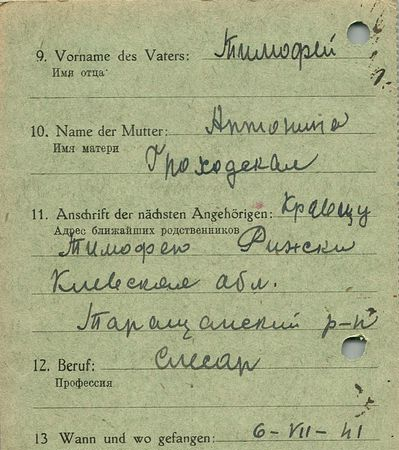 9. Vorname des Vaters: Тимофей
Имя отца
10. Name der Mutter: Антонина
Имя матери
Гроходская
11. Anschrift der nächsten Angehörigen: Кравцу
Адрес ближайших родственников
Тимофею
Киевская абл.
Таращанский р-н
12. Beruf: Слесар
Профессия
13 Wann und wo gefangen: 6-VII-41